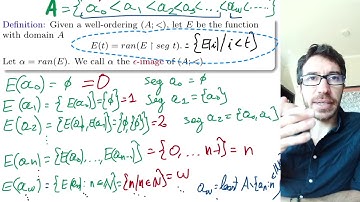 A = {a₀ < a₁ < a₂ < a₃ < ... < aω < ...}
Definition: Given a well-ordering (A; <), let E be the function
with domain A
E(t) = ran(E ↾ seg t). = {E(i) / i < t}
Let α = ran(E). We call α the ϵ-image of (A; <).
E(a₀) = ϕ = 0 seg a₀ = ϕ
E(a₁) = {E(a₀)} = {ϕ} = 1 seg a₁ = {a₀}
E(a₂) = {E(a₀), E(a₁)} = {ϕ, {ϕ}} = 2 seg a₂ = {a₀, a₁}
E(an) = {E(a₀), ..., E(an-1)} = {0, ... n-1} = n
E(aω) = {E(an) : n ∈ ℕ} = {n / n ∈ ℕ} = ω aω = least A \ {an : n